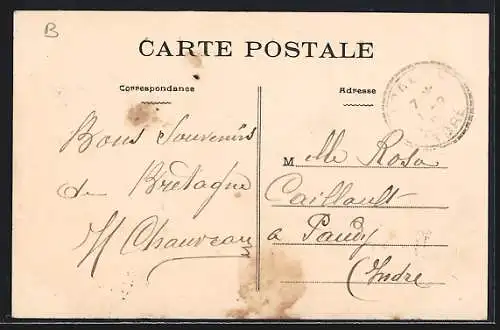 B
CARTE POSTALE
Correspondance
Adresse
Bons Souvenirs
de Bretagne
H Chauveau
M elle Rosa
Caillault
a Paudy
(Indre